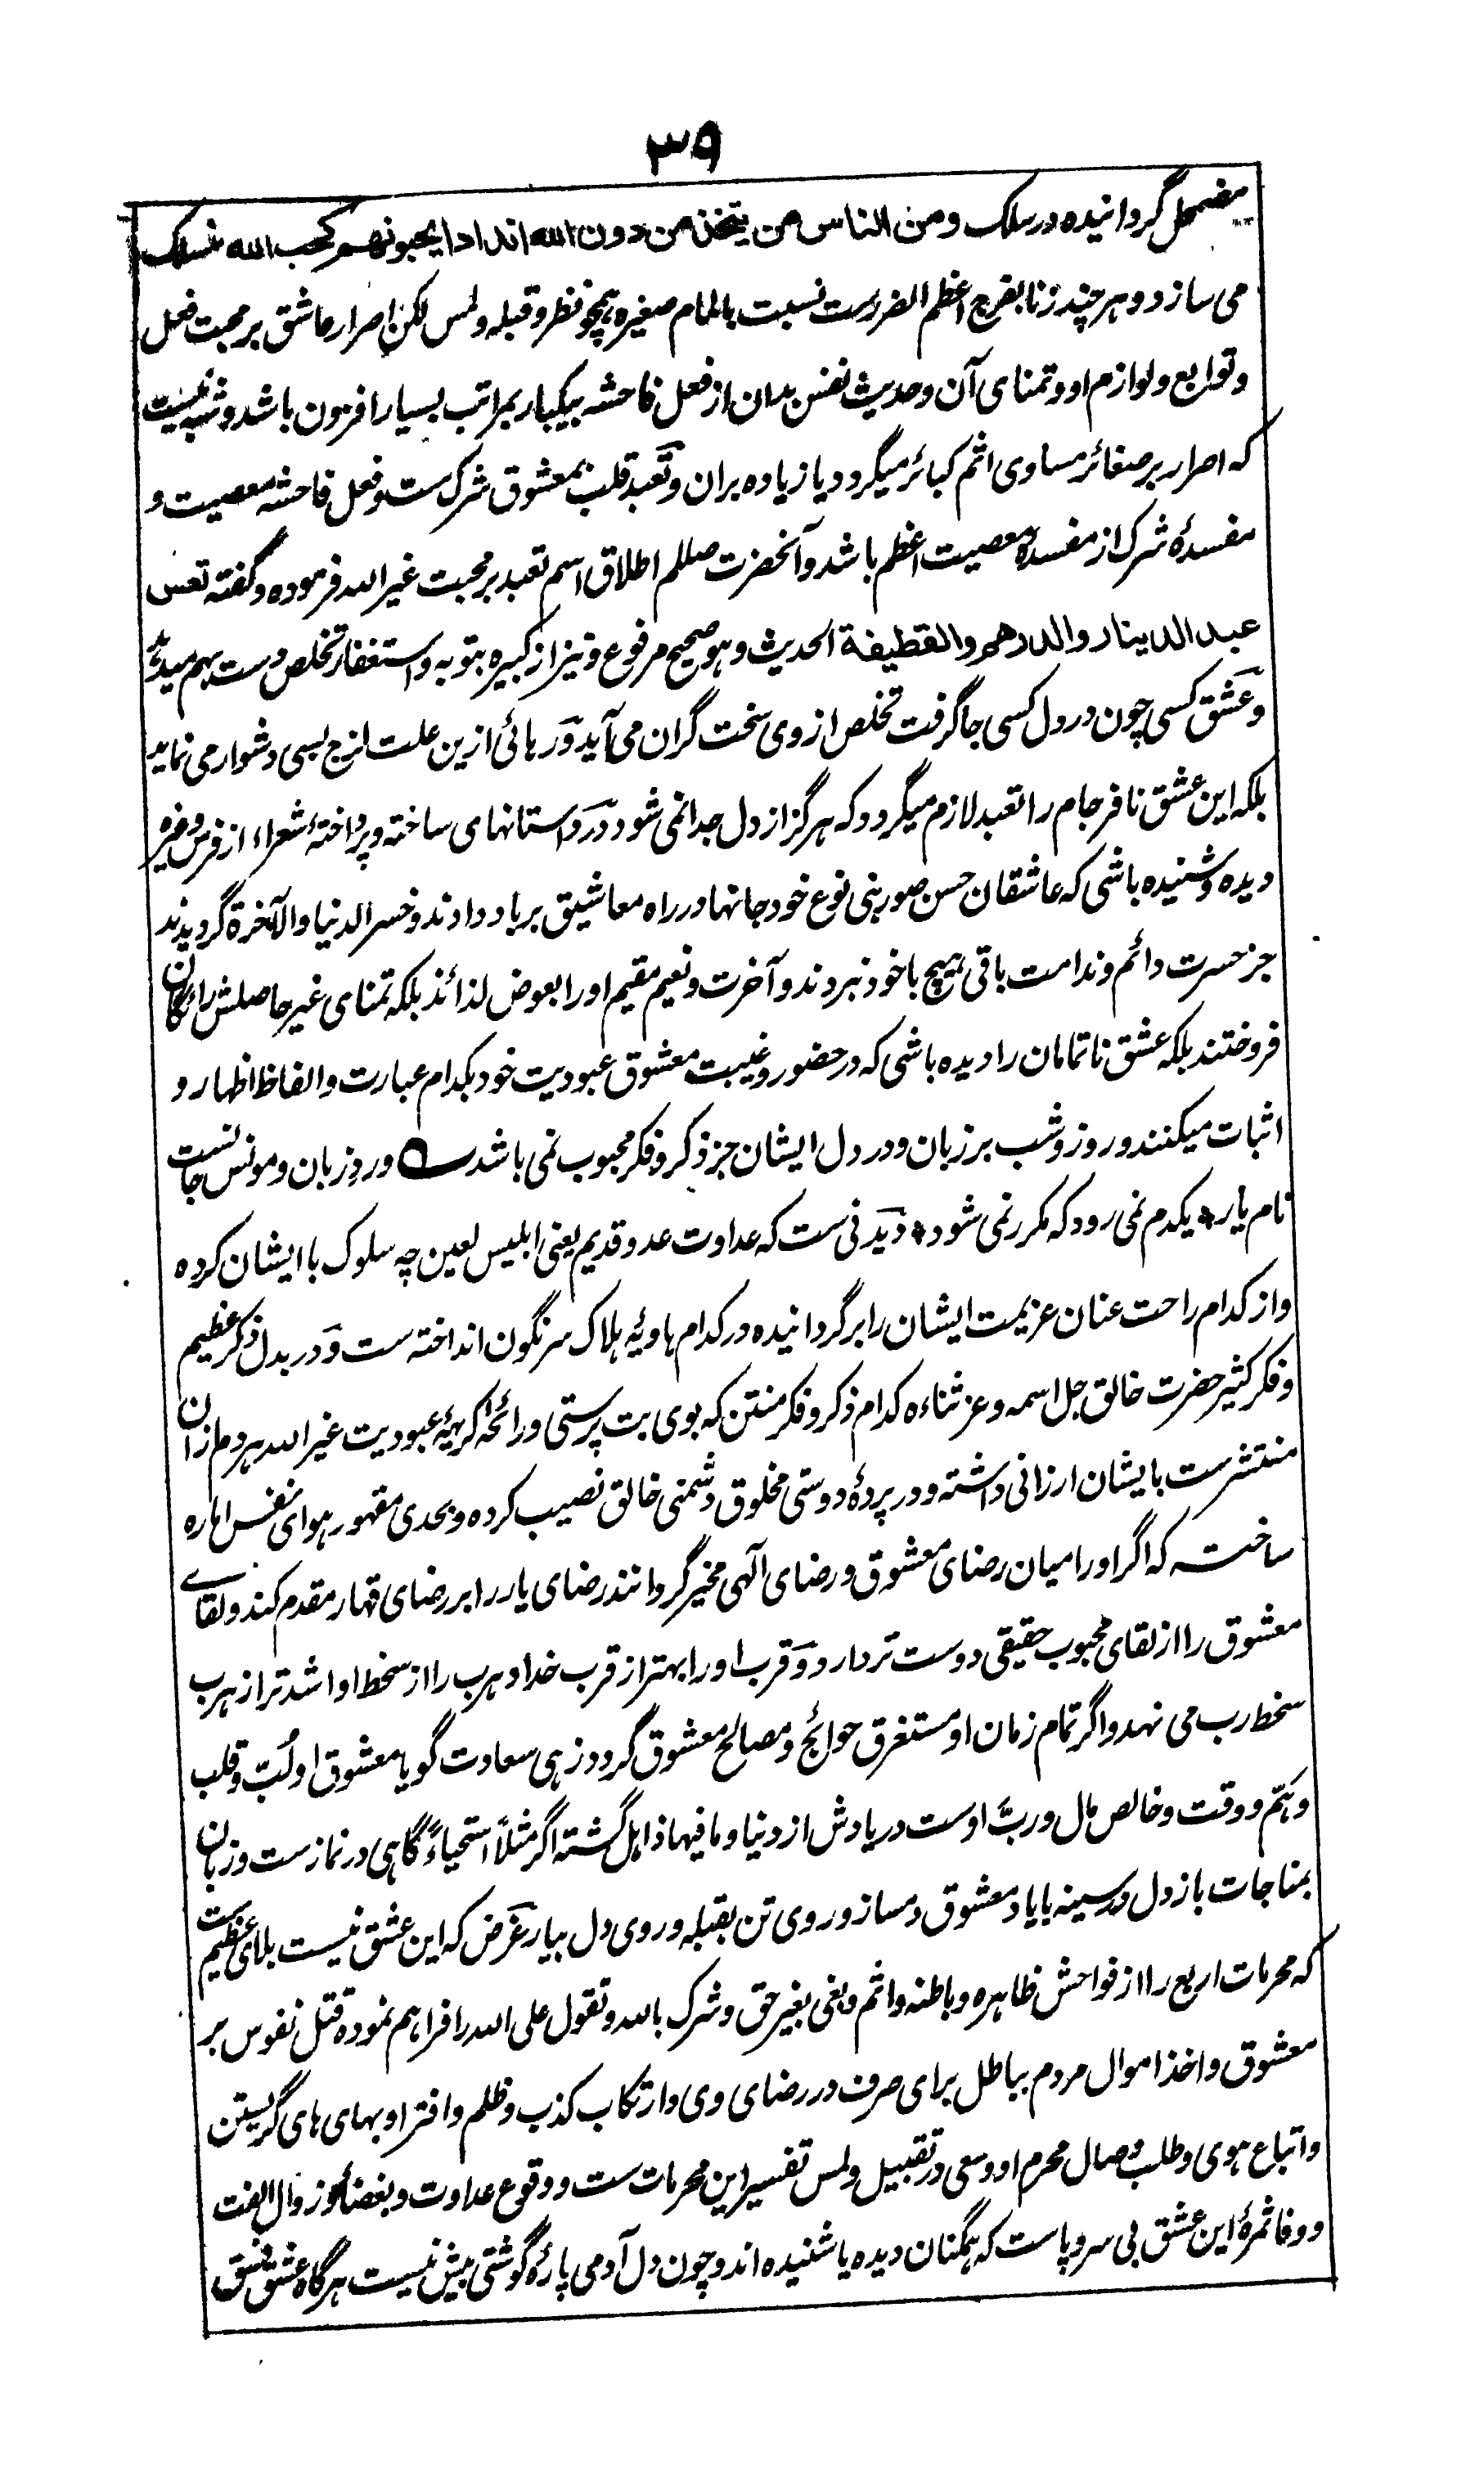 ۳۹
مضمحل گردانیده در سلک ومن الناس من یتخذ من دون الله اندادا یحبونهم کحب الله منسلک
می سازد و هر چند زنا بفرج اعظم الضررست نسبت بالمام صغیره همچو نظر و قبله و لمس لکن اصرار عاشق بر محبت فعل
و توابع و لوازم او و تمنای آن و حدیث نفس بدان از فعل فاحشه بیکبار بمراتب بسیار افزون باشد و شبه نیست
که اصرار بر صغائر مساوی اثم کبائر میگردد یا زیاده بران و تعبد قلب بمعشوق شرک ست و فعل فاحشه معصیت و
مفسدهٔ شرک از مفسدهٔ معصیت اعظم باشد و آنحضرت صللم اطلاق اسم تعبد بر محبت غیر الله فرموده و گفته تعس
عبد الدینار والدرهم والقطیفة الحدیث و هو صحیح مرفوع و نیز از کبیره بتوبه و استغفار تخلص دست بهم میدهد
و عشق کسی چون در دل کسی جا گرفت تخلص از وی سخت گران می آید و رهائی ازین علت لزج بسی دشوار می نماید
بلکه این عشق نافرجام را تعبد لازم میگردد که هرگز از دل جدا نمی شود در داستانهای ساخته و پرداختهٔ شعراء از فرس و غیره
دیده و شنیده باشی که عاشقان حسن صور بنی نوع خود جانها در راه معاشیق برباد دادند و خسر الدنیا والآخرة گردیدند
جز حسرت دائم و ندامت باقی هیچ با خود نبردند و آخرت و نعیم مقیم او را بعوض لذائذ بلکه تمنای غیر حاصلش رائگان
فروختند بلکه عشق ناتمامان را دیده باشی که در حضور و غیبت معشوق عبودیت خود بکدام عبارت و الفاظ اظهار و
اثبات میکنند و روز و شب بر زبان و در دل ایشان جز ذکر و فکر محبوب نمی باشد ؎ ورد زبان و مونس جانست
نام یار * یکدم نمی رود که مکرر نمی شود * دیدنی ست که عداوت عدو قدیم یعنی ابلیس لعین چه سلوک با ایشان کرده
و از کدام راحت عنان عزیمت ایشان را برگردانیده در کدام هاویهٔ هلاک سرنگون انداخته ست و در بدل ذکر عظیم
و فکر کثیر حضرت خالق جل اسمه و عز ثناءه کدام ذکر و فکر منتن که بوی بت پرستی و رائحهٔ کریهٔ عبودیت غیر الله هر دم ازان
منتشر ست بایشان ارزانی داشته و در پردهٔ دوستی مخلوق دشمنی خالق نصیب کرده و بحدی مقهور هوای نفس اماره
ساخته که اگر او را میان رضای معشوق و رضای آلهی مخیر گردانند رضای یار را بر رضای قهار مقدم کند و لقاے
معشوق را از لقای محبوب حقیقی دوست تر دارد و قرب او را بهتر از قرب خدا و هرب را از سخط او اشد تر از هرب
سخط رب می نهد و اگر تمام زمان او مستغرق حوائج و مصالح معشوق گردد زهی سعادت گویا معشوق او لُبّ و قلب
و همّ و وقت و خالص مال و ربّ اوست در یادش از دنیا و ما فیها ذاهل گشته اگر مثلاً استحیاءً گاهی در نماز ست و زبان
بمناجات باز دل در سینه با یاد معشوق دمساز و روی تن بقبله و روی دل بیار غرض که این عشق نیست بلای عظیم ست
که محرمات اربع را از فواحش ظاهره و باطنه و اثم و بغی بغیر حق و شرک بالله و تقول علی الله را فراهم نموده قتل نفوس بر
معشوق و اخذ اموال مردم بباطل برای صرف در رضای وی و ارتکاب کذب و ظلم و افترا و بهای های گریستن
و اتباع هوی و طلب وصال محرم او و سعی در تقبیل و لمس تفسیر این محرمات ست و وقوع عداوت و بغضا و زوال الفت
و وفا ثمرهٔ این عشق بی سر و پاست که همگنان دیده یا شنیده اند و چون دل آدمی پارهٔ گوشتی بیش نیست هرگاه عشق و فسق